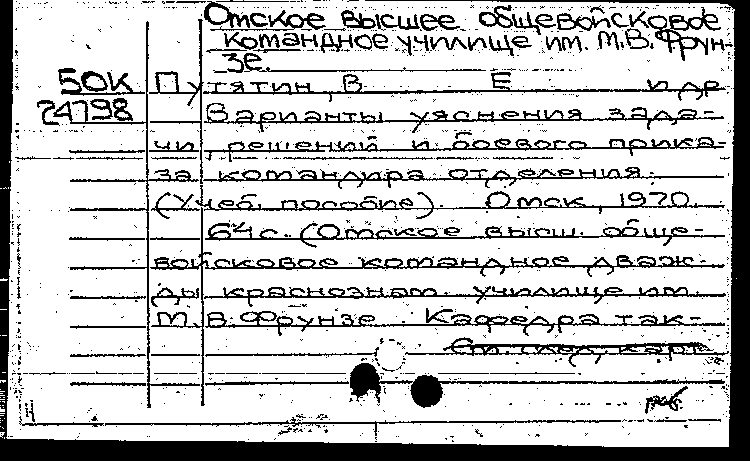 Омское высшее общевойсковое
командное училище им. М.В. Фрун-
зе.
50К Путятин, В Е и др
24798 Варианты уяснения зада-
чи, решений и боевого прика-
за командира отделения.
(Учеб. пособие). Омск, 1970.
64с. (Омское высш. обще-
войсковое командное дваж-
ды краснознам. училище им.
М.В. Фрунзе. Кафедра так-
См. след. карт